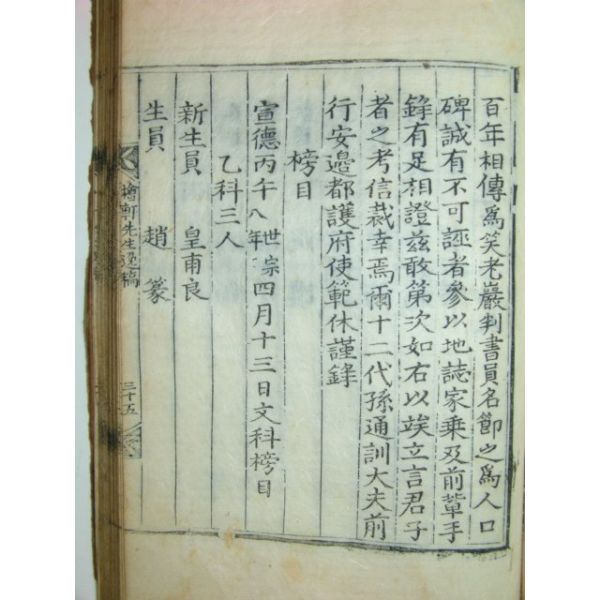 百年相傳爲笑老巖判書員名節之爲人口
碑誠有不可誣者參以地誌家乘及前輩手
錄有足相證玆敢第次如右以竢立言君子
者之考信裁幸焉爾十二代孫通訓大夫前
行安邊都護府使範休謹錄
榜目
宣德丙午世宗八年四月十三日文科榜目
乙科三人
新生員 皇甫良
生員 趙篆
檜軒先生逸稿 三十五